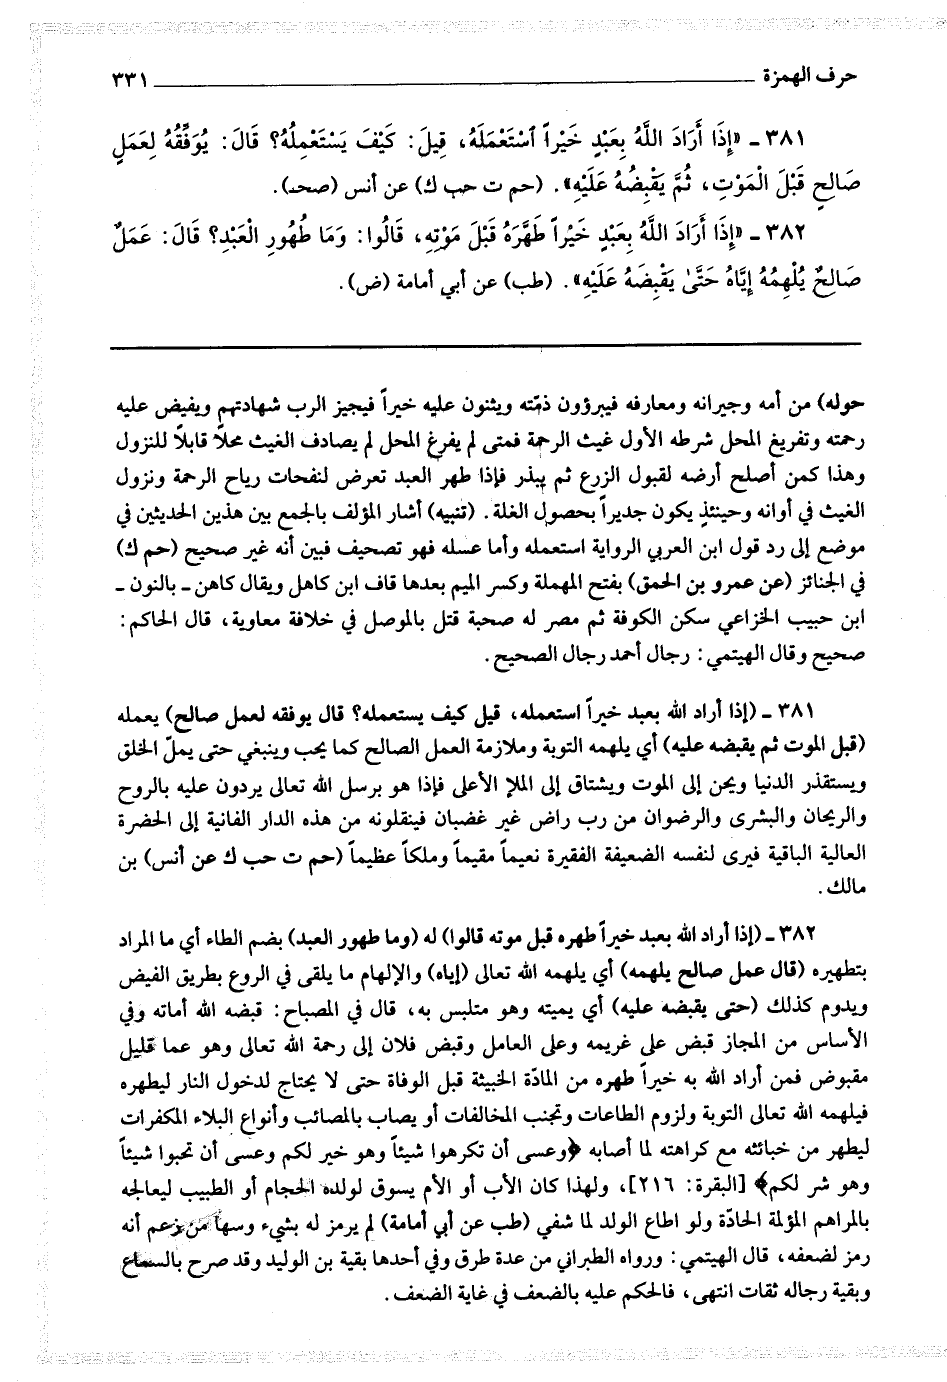 حرف الهمزة ٣٣١
٣٨١ ـ «إِذَا أَرَادَ اللَّهُ بِعَبْدٍ خَيْراً ٱسْتَعْمَلَهُ، قِيلَ: كَيْفَ يَسْتَعْمِلُهُ؟ قَالَ: يُوَفِّقُهُ لِعَمَلٍ
صَالِحٍ قَبْلَ الْمَوْتِ، ثُمَّ يَقْبِضُهُ عَلَيْهِ». (حم ت حب ك) عن أنس (صحـ).
٣٨٢ ـ «إِذَا أَرَادَ اللَّهُ بِعَبْدٍ خَيْراً طَهَّرَهُ قَبْلَ مَوْتِهِ، قَالُوا: وَمَا طُهُورِ الْعَبْدِ؟ قَالَ: عَمَلٌ
صَالِحٌ يُلْهِمُهُ إِيَّاهُ حَتَّىٰ يَقْبِضَهُ عَلَيْهِ». (طب) عن أبي أمامة (ض).
حوله) من أمه وجيرانه ومعارفه فيبرؤون ذمّته ويثنون عليه خيراً فيجيز الرب شهادتهم ويفيض عليه
رحمته وتفريغ المحل شرطه الأول غيث الرحمة فمتى لم يفرغ المحل لم يصادف الغيث محلاً قابلاً للنزول
وهذا كمن أصلح أرضه لقبول الزرع ثم يبذر فإذا طهر العبد تعرض لنفحات رياح الرحمة ونزول
الغيث في أوانه وحينئذٍ يكون جديراً بحصول الغلة. (تنبيه) أشار المؤلف بالجمع بين هذين الحديثين في
موضع إلى رد قول ابن العربي الرواية استعمله وأما عسله فهو تصحيف فبين أنه غير صحيح (حم ك)
في الجنائز (عن عمرو بن الحمق) بفتح المهملة وكسر الميم بعدها قاف ابن كاهل ويقال كاهن ـ بالنون ـ
ابن حبيب الخزاعي سكن الكوفة ثم مصر له صحبة قتل بالموصل في خلافة معاوية، قال الحاكم:
صحيح وقال الهيتمي: رجال أحمد رجال الصحيح.
٣٨١ ـ (إذا أراد الله بعبد خيراً استعمله، قيل كيف يستعمله؟ قال يوفقه لعمل صالح) يعمله
(قبل الموت ثم يقبضه عليه) أي يلهمه التوبة وملازمة العمل الصالح كما يحب وينبغي حتى يملّ الخلق
ويستقذر الدنيا ويحن إلى الموت ويشتاق إلى الملإ الأعلى فإذا هو برسل الله تعالى يردون عليه بالروح
والريحان والبشرى والرضوان من رب راض غير غضبان فينقلونه من هذه الدار الفانية إلى الحضرة
العالية الباقية فيرى لنفسه الضعيفة الفقيرة نعيماً مقيماً وملكاً عظيماً (حم ت حب ك عن أنس) بن
مالك.
٣٨٢ ـ (إذا أراد الله بعبد خيراً طهره قبل موته قالوا) له (وما طهور العبد) بضم الطاء أي ما المراد
بتطهيره (قال عمل صالح يلهمه) أي يلهمه الله تعالى (إياه) والإلهام ما يلقى في الروع بطريق الفيض
ويدوم كذلك (حتى يقبضه عليه) أي يميته وهو متلبس به، قال في المصباح: قبضه الله أماته وفي
الأساس من المجاز قبض على غريمه وعلى العامل وقبض فلان إلى رحمة الله تعالى وهو عما قليل
مقبوض فمن أراد الله به خيراً طهره من المادّة الخبيثة قبل الوفاة حتى لا يحتاج لدخول النار ليطهره
فيلهمه الله تعالى التوبة ولزوم الطاعات وتجنب المخالفات أو يصاب بالمصائب وأنواع البلاء المكفرات
ليطهر من خبائثه مع كراهته لما أصابه ﴿وعسى أن تكرهوا شيئاً وهو خير لكم وعسى أن تحبوا شيئاً
وهو شر لكم﴾ [البقرة: ٢١٦]، ولهذا كان الأب أو الأم يسوق لولده الحجام أو الطبيب ليعالجه
بالمراهم المؤلمة الحادّة ولو اطاع الولد لما شفي (طب عن أبي أمامة) لم يرمز له بشيء وسها من زعم أنه
رمز لضعفه، قال الهيتمي: ورواه الطبراني من عدة طرق وفي أحدها بقية بن الوليد وقد صرح بالسماع
وبقية رجاله ثقات انتهى، فالحكم عليه بالضعف في غاية الضعف.